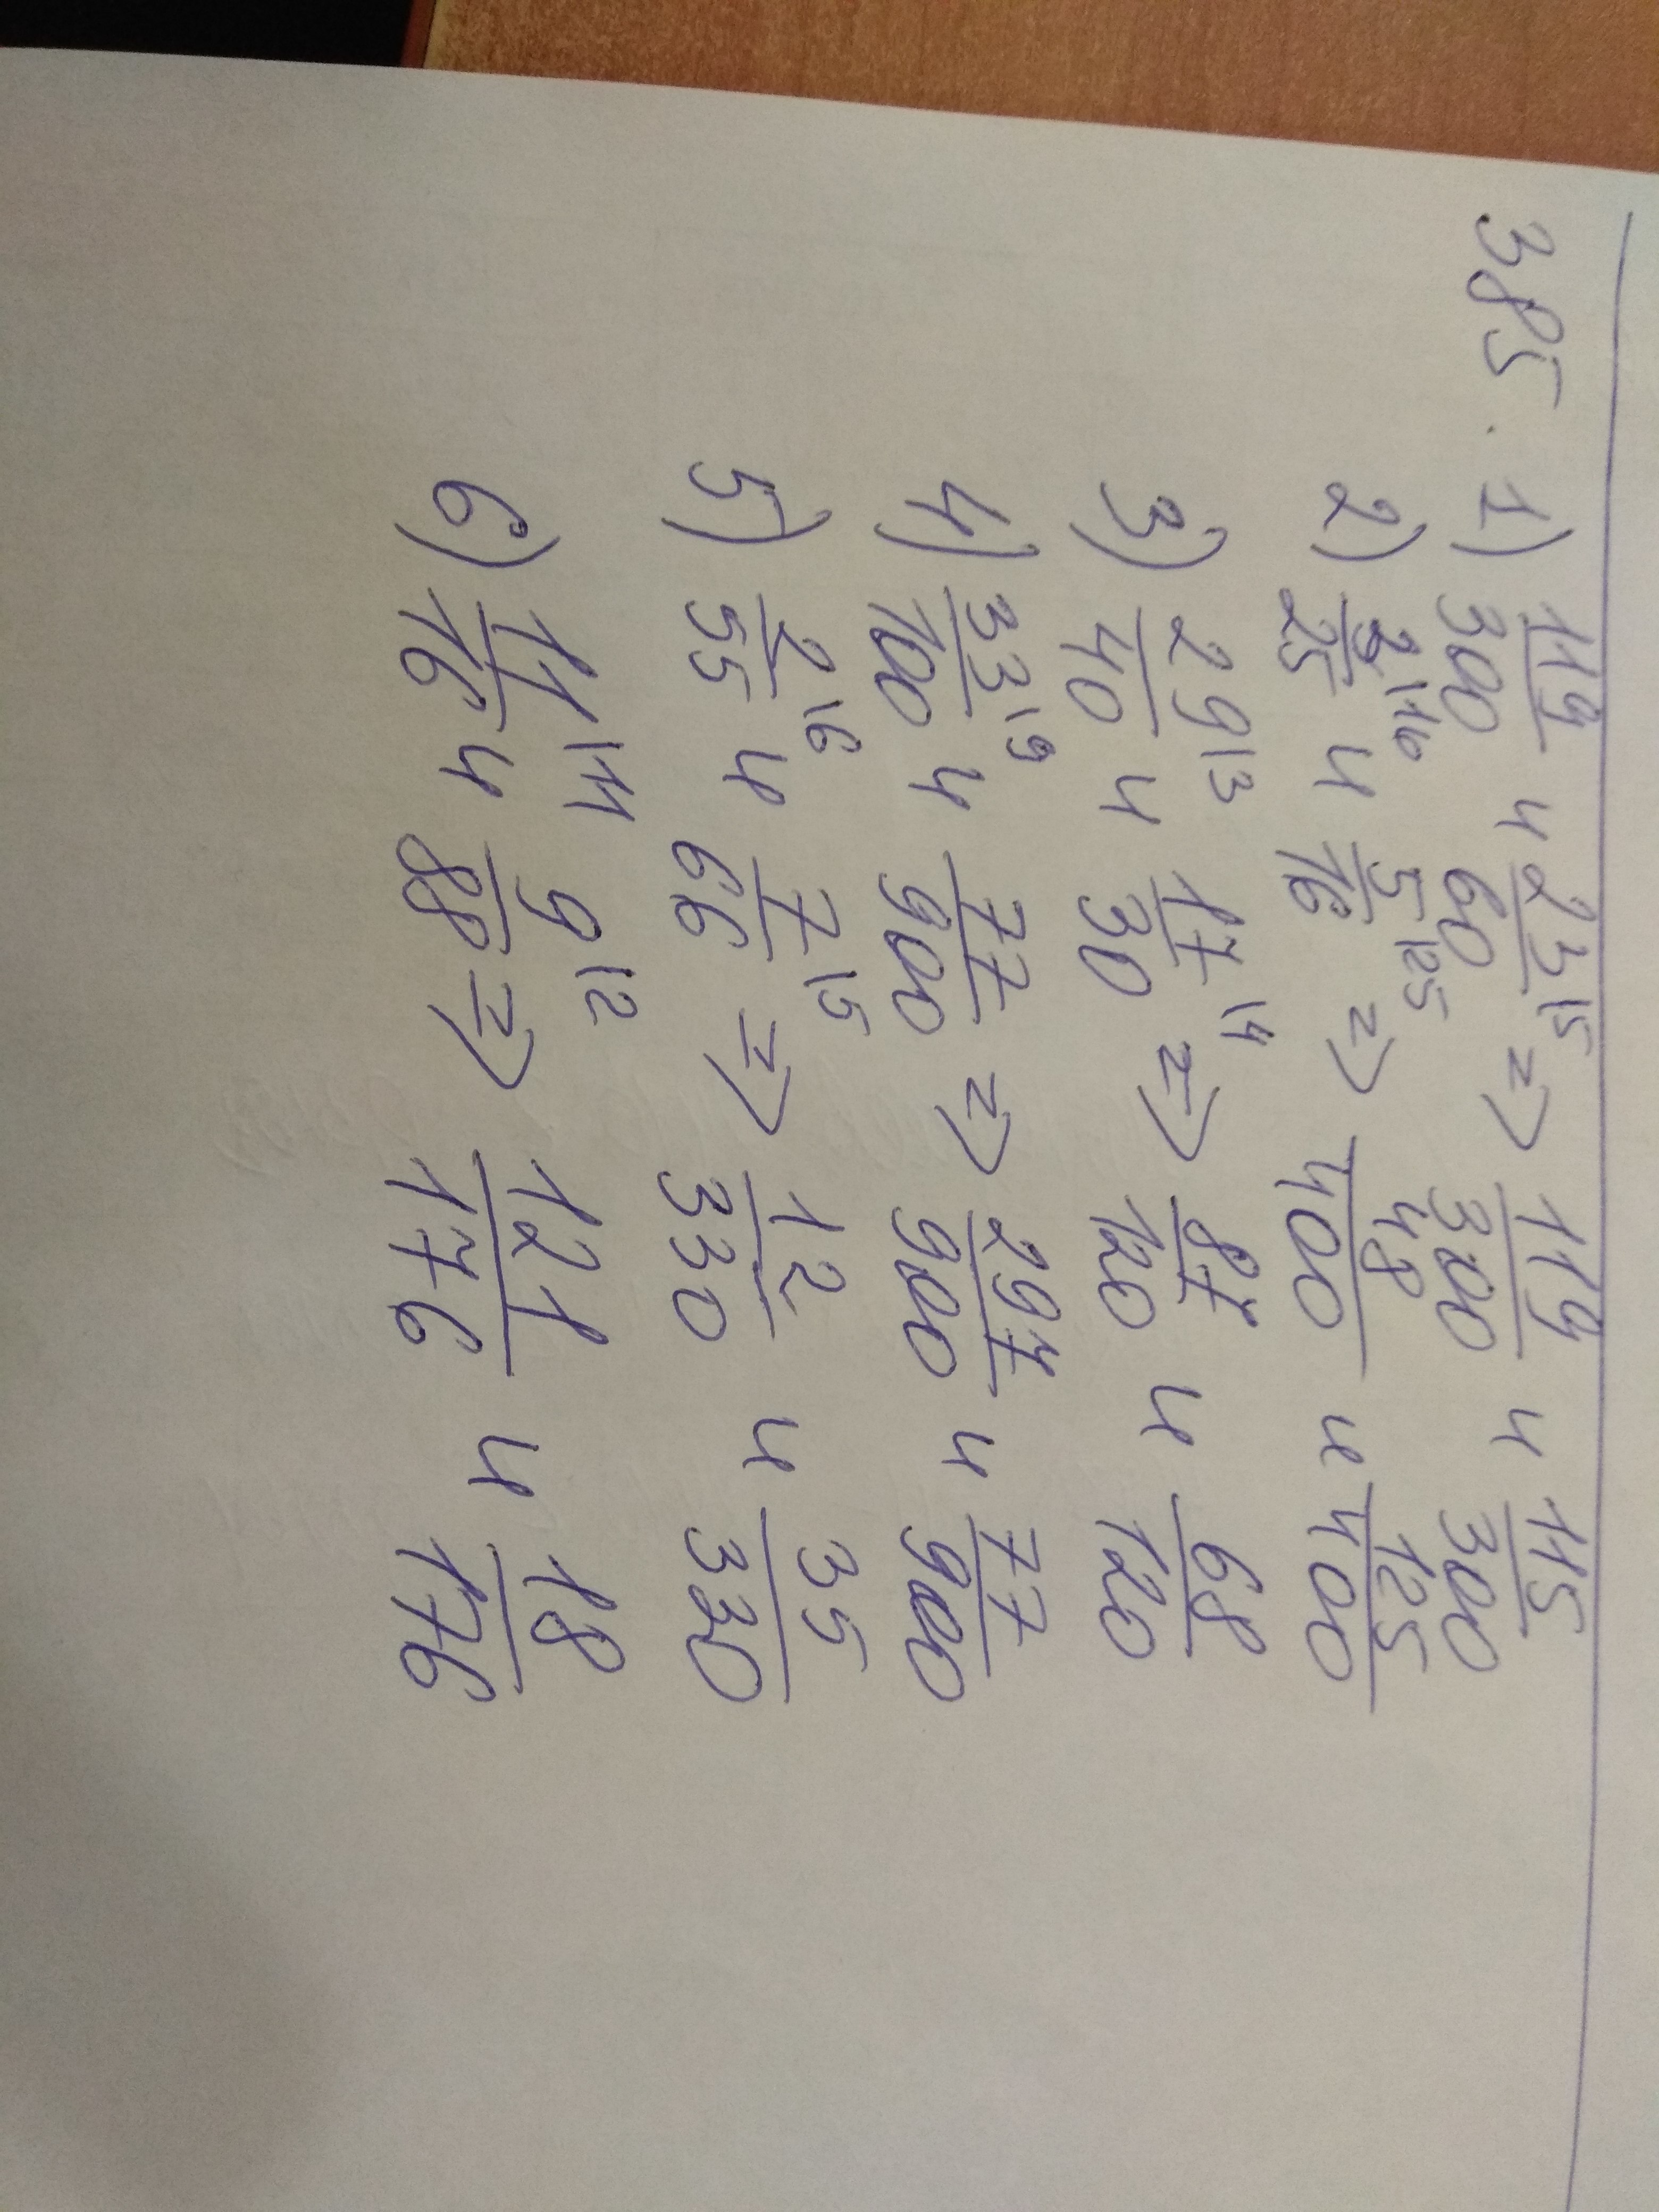 385. 1) 119/300 и 23/60 |5 => 119/300 и 115/300
2) 3/25 |16 и 5/16 |25 => 48/400 и 125/400
3) 29/40 |3 и 17/30 |4 => 87/120 и 68/120
4) 33/100 |9 и 77/900 => 297/900 и 77/900
5) 2/55 |6 и 7/66 |5 => 12/330 и 35/330
6) 11/16 |11 и 9/88 |2 => 121/176 и 18/176